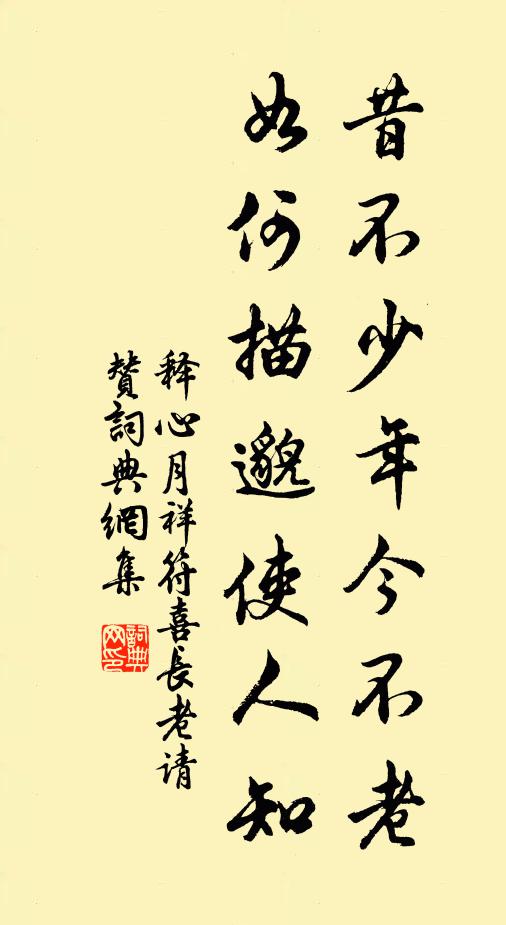 昔不少年今不老
如何描邈使人知
释心月祥符喜長老请
贊詞典網集
詞典网印